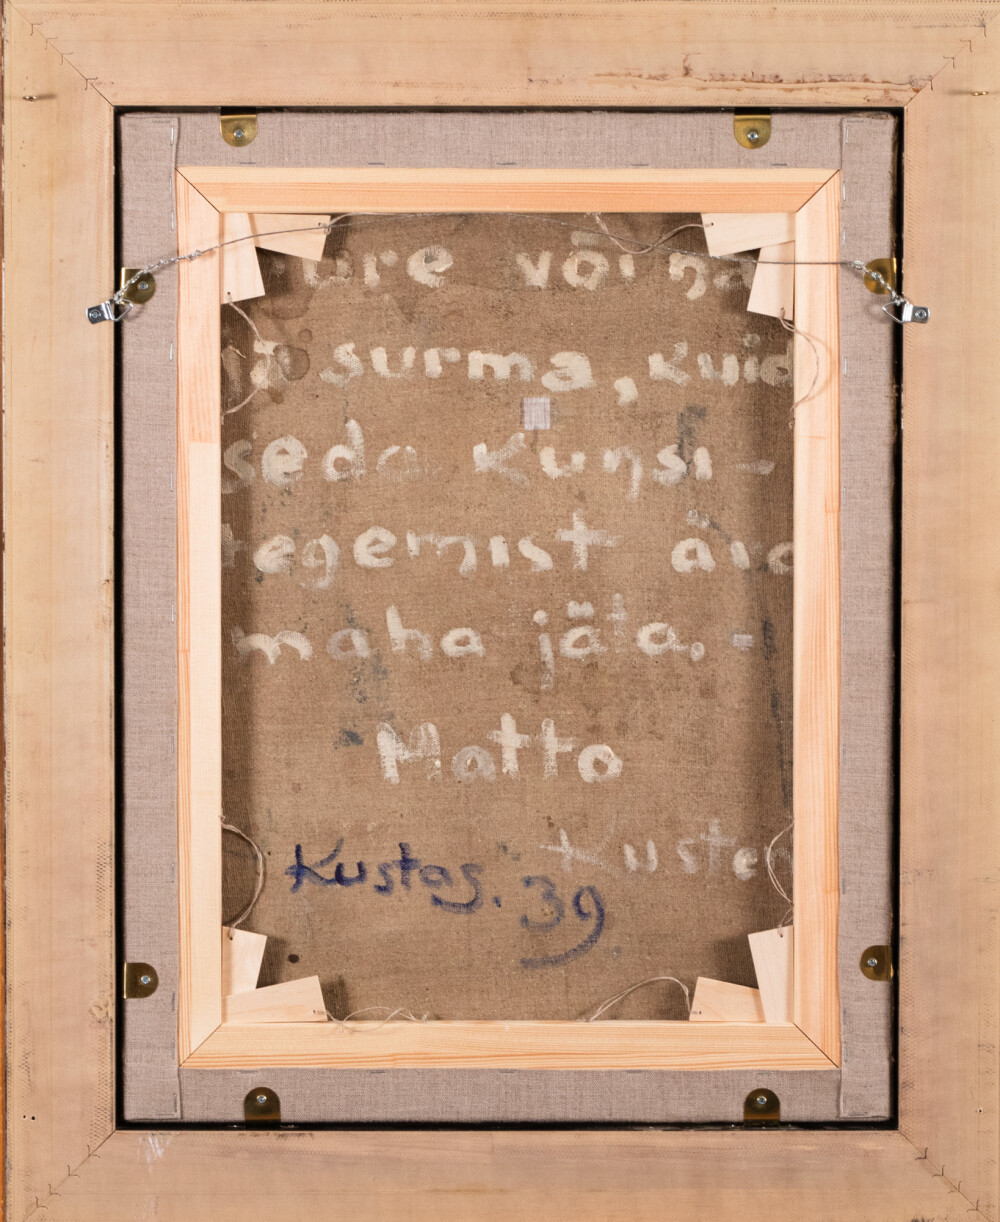 ure või na
ja surma, kuid
seda kunsi-
tegemist ära
maha jäta. -
Motto
Kuste
Kustas. 39